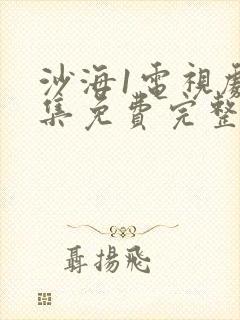 沙海1電視劇
集免費完整
聶揚飛